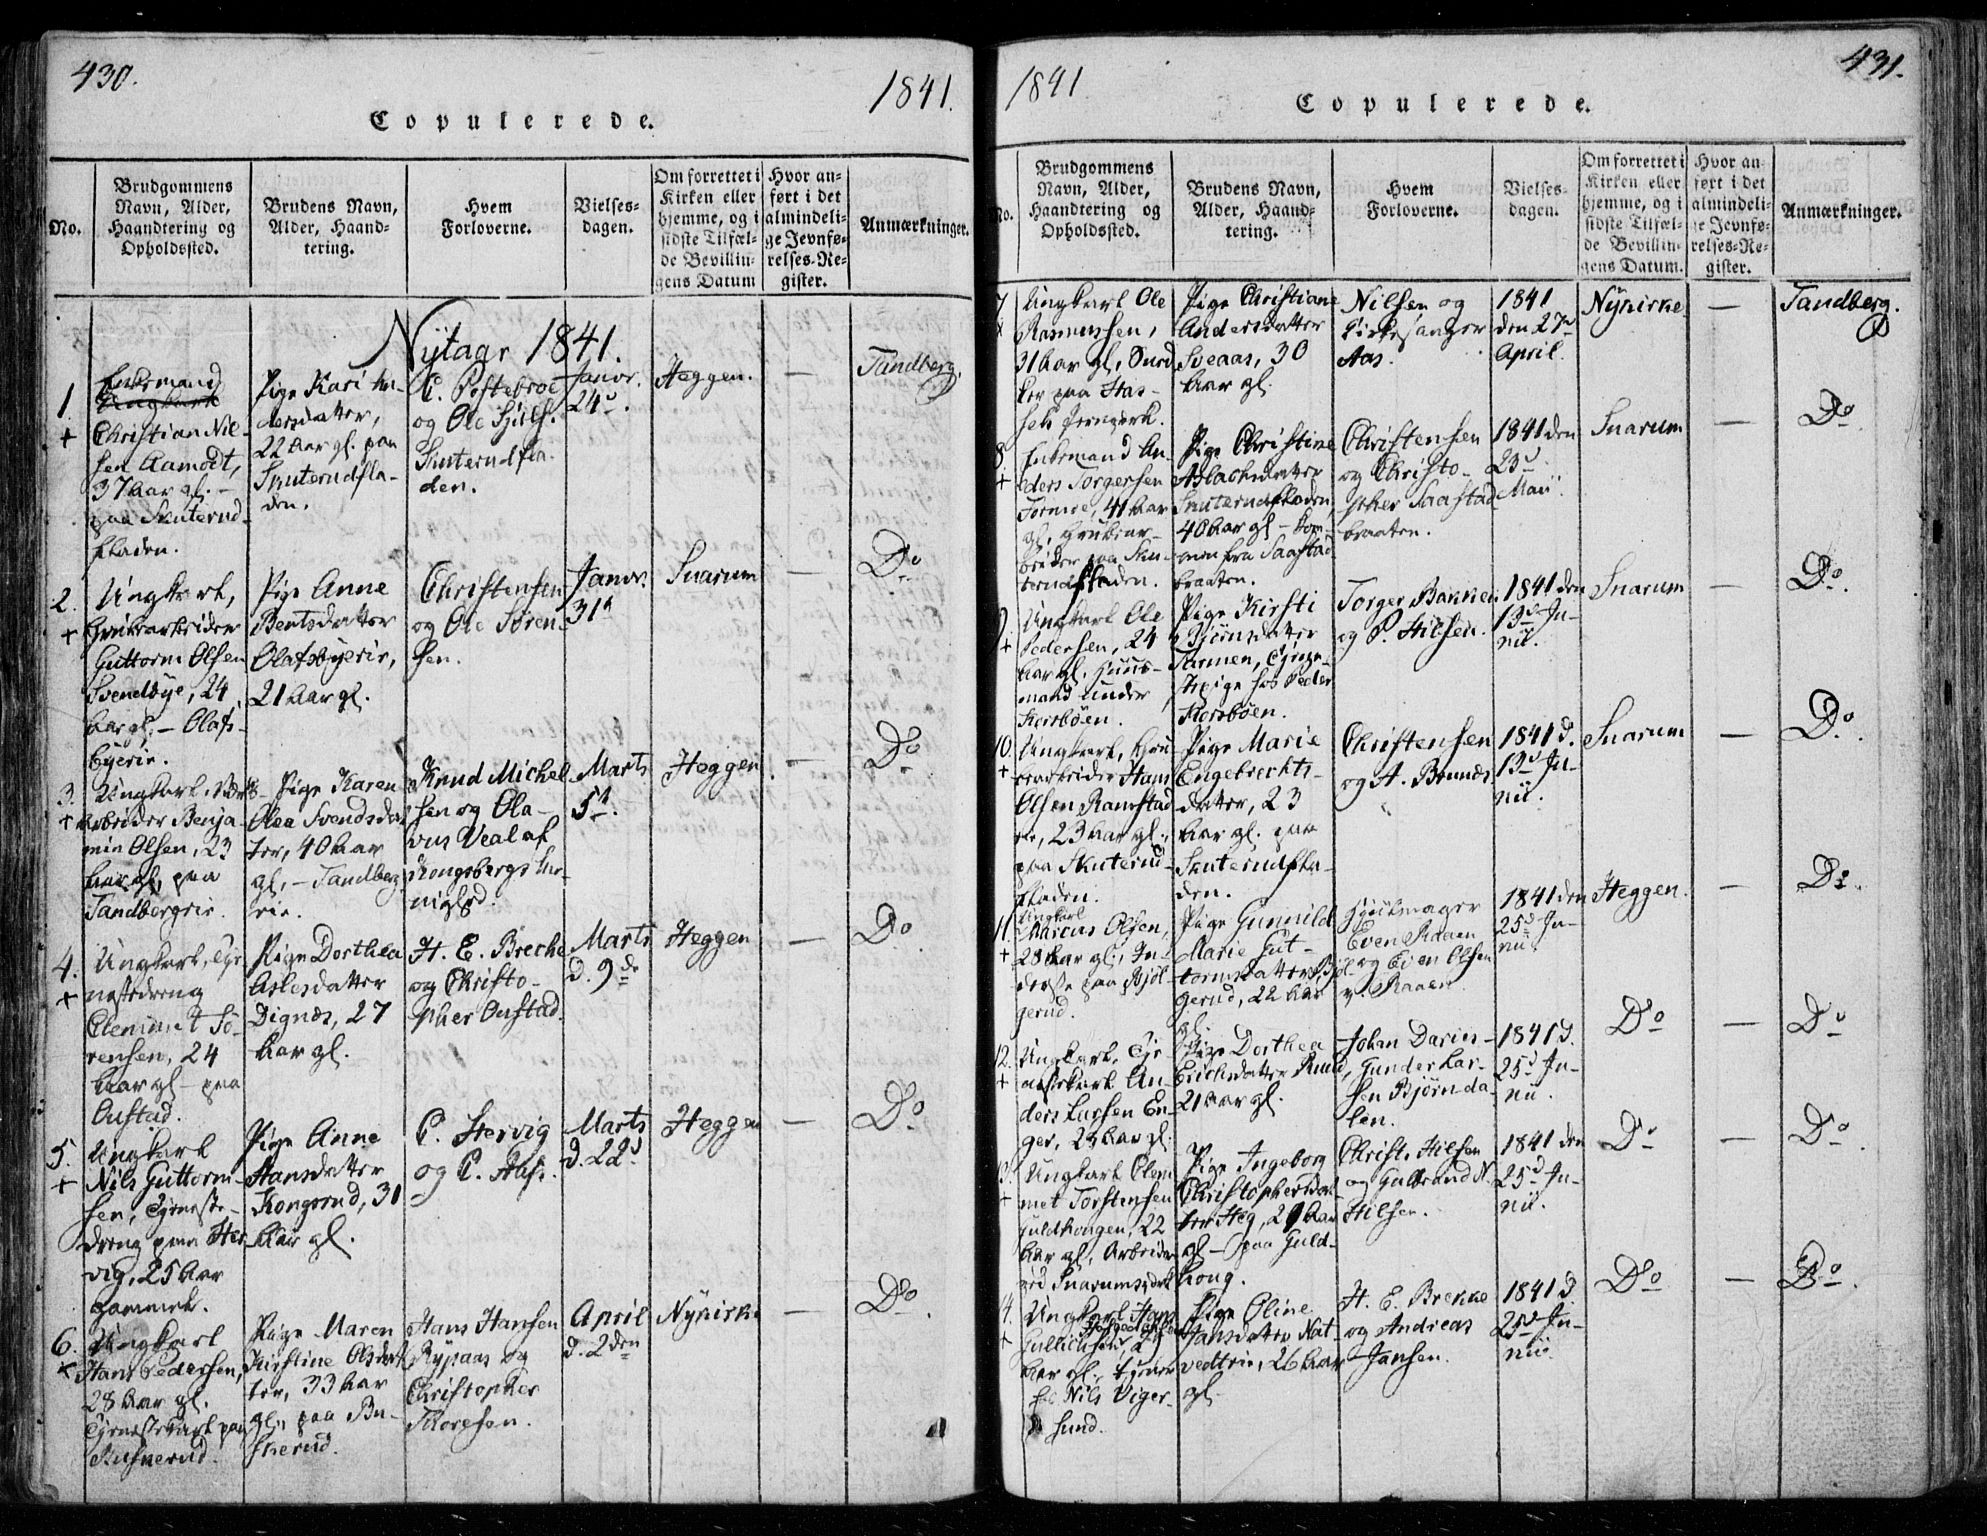 430.
1841.
Copulerede.
No.
Brudgommens
Navn, Alder,
Haandtering og
Opholdssted.
Brudens Navn,
Alder, Haand-
tering.
Hvem
Forloverne.
Vielses-
dagen.
Om forrettet i
Kirken eller
hjemme, og i
sidste Tilfæl-
de Bevillin-
gens Datum
Hvor an-
ført i det
almindeli-
ge Jevnfø-
relses-Re-
gister.
Anmærkninger.
Nytaar 1841.
1.
+
Enkemand
Ungkarl
Christian Nil-
sen Aamodt,
37 Aar gl. –
paa Skuterud-
fladen.
Pige Kari An-
dersdatter,
22 Aar gl. paa
Skuterudfla-
den.
C. Postebroe
og Ole
Skuterudfla-
den.
Janvr.
24d.
Heggen.
—
Tandberg.
2.
+
Ungkarl,
Grubearbeider
Guttorm Olsen
Svendbye, 24
Aar gl. – Olafs-
byeeie.
Pige Anne
Bentsdatter
Olafsbyeeie,
21 Aar gl.
Christensen
og Ole Søren-
sen.
Janvr.
31te
Snarum
—
Do
3.
+
Ungkarl, Værks-
Arbeider Benja-
min Olsen, 23
Aar gl, paa
Tandbergeie.
Pige Karen
Olea Svendsdat-
ter, 40 Aar
gl, – Tandberg-
eie.
Knud Michel-
sen og Ola-
vus Veal af
Kongsbergs Me-
nighed.
Marts
5te.
Heggen
—
Do
4.
+
Ungkarl, Tje-
nestedreng
Clemmet Sø-
rensen, 24
Aar gl – paa
Oustad.
Pige Dorthea
Aslesdatter
Dignæs, 27
Aar gl.
H. E. Breche
og Christo-
pher Oustad.
Marts
d. 9de
Heggen
—
Do
5.
+
Ungkarl
Nils Guttorm-
sen, Tjeneste-
dreng paa Her-
vig, 25 Aar
gammel.
Pige Anne
Hansdatter
Kongsrud, 31
Aar gl.
C. Hervig
og C. Aas.
Marts
d. 22d
Heggen
—
Do
6.
+
Ungkarl
Hans Pedersen,
28 Aar gl.
Tjenestekarl paa
Buskerud.
Pige Maren
Kirstine Olsdat-
ter, 33 Aar
gl, paa Bu-
skerud.
Hans Hansen
Rypaas og
Christopher
Thoresen.
April
d. 2den
Nykirke
—
Do
431.
1841
Copulerede.
No.
Brudgommens
Navn, Alder,
Haandtering og
Opholdssted.
Brudens Navn,
Alder, Haand-
tering.
Hvem
Forloverne.
Vielses-
dagen.
Om forrettet i
Kirken eller
hjemme, og i
sidste Tilfæl-
de Bevillin-
gens Datum.
Hvor an-
ført i det
almindeli-
ge Jevnfø-
relses-Re-
gister.
Anmærkninger.
7.
Ungkarl Ole
Rasmussen,
31 Aar gl, Smed
paa Has-
sels Jernverk.
Pige Christiane
Andersdatter
Sveaas, 30
Aar gl.
Nilsen og
Kirkesanger
Aas.
1841
den 27de
April.
Nykirke
—
Tandberg.
8
+
Enkemand An-
ders Torgersen
41 Aar
gl, Grubear-
beider paa Sku-
terudfladen.
Pige Christine
Aslachsdatter
Skuterudfladen,
40 Aar gl – kom-
men fra Saastad-
braaten.
Christensen
og Christo-
pher Saastad-
braaten.
1841 den
23d
Maii.
Snarum
—
Do
9
+
Ungkarl Ole
Pedersen, 24
Aar gl. Huus-
mand under
Korsbøen.
Pige Kirsti
Bjørnsdatter
Tarmen, Tjene-
stepige hos Peder
Korsbøen.
Torger Bakken
og P. Hilsen.
1841 den
13d Ju-
nii.
Snarum
—
Do.
10.
+
Ungkarl, Gru-
bearbeider Hans
Olsen Ramstad-
eie, 23 Aar gl.,
paa Skuterud-
fladen.
Pige Marie
Engebrechts-
datter, 23
Aar gl. paa
Skuterudfla-
den.
Christensen
og A. Brunæs
1841 d.
13d Ju-
nii.
Snarum
—
Do.
11.
+
Ungkarl
Marcus Olsen,
28 Aar gl., In-
derste paa Bjøl-
gerud.
Pige Gunnild
Marie Gut-
tormsdatter Bjøl-
gerud, 22 Aar
gl.
Hjulmager
Even Raaen
og Even Olsen
v. Raaen.
1841 den
25d Ju-
nii.
Heggen.
—
Do.
12.
+
Ungkarl, Tje-
nestekarl An-
ders Larsen En-
ger, 24 Aar gl.
Pige Dorthea
Erichsdatter Ruud,
21 Aar gl.
Johan Daries-
Gunder Lar-
sen Bjørnda-
len.
1841 d.
25d Ju-
nii.
Do
—
Do
13.
+
Ungkarl Clem-
met Torstensen
Guldhougen, 22
Aar gl, Arbeider
ved Snarumsværk
Pige Ingeborg
Christophersdat-
ter Heg, 29 Aar
gl – paa Guld-
houg.
Christ. Hilsen
og Gulbrand N.
Hilsen.
1841 den
25d Ju-
nii.
Do
—
Do
14.
+
Ungkarl Hans
Gullichsen
Aar gl., tjener
hos Nils Viger-
sund.
Pige Oline
Jansdatter Nat-
vedteie, 26 Aar
gl.
H. E. Brekke
og Andreas
Jansen.
1841 d
25d Ju-
nii.
Do
—
Do